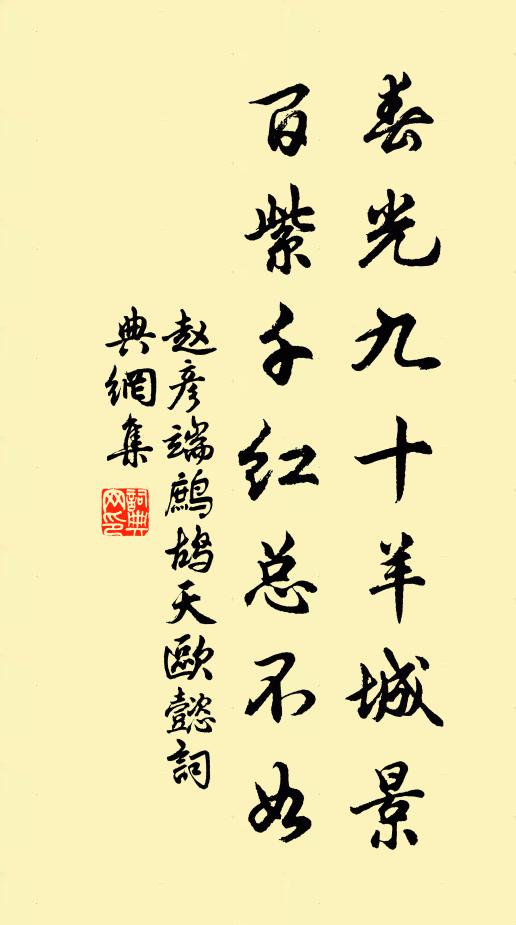 春光九十羊城景
百紫千红总不如
赵彦端鹧鸪天欧懿詞
典網集
詞典網印